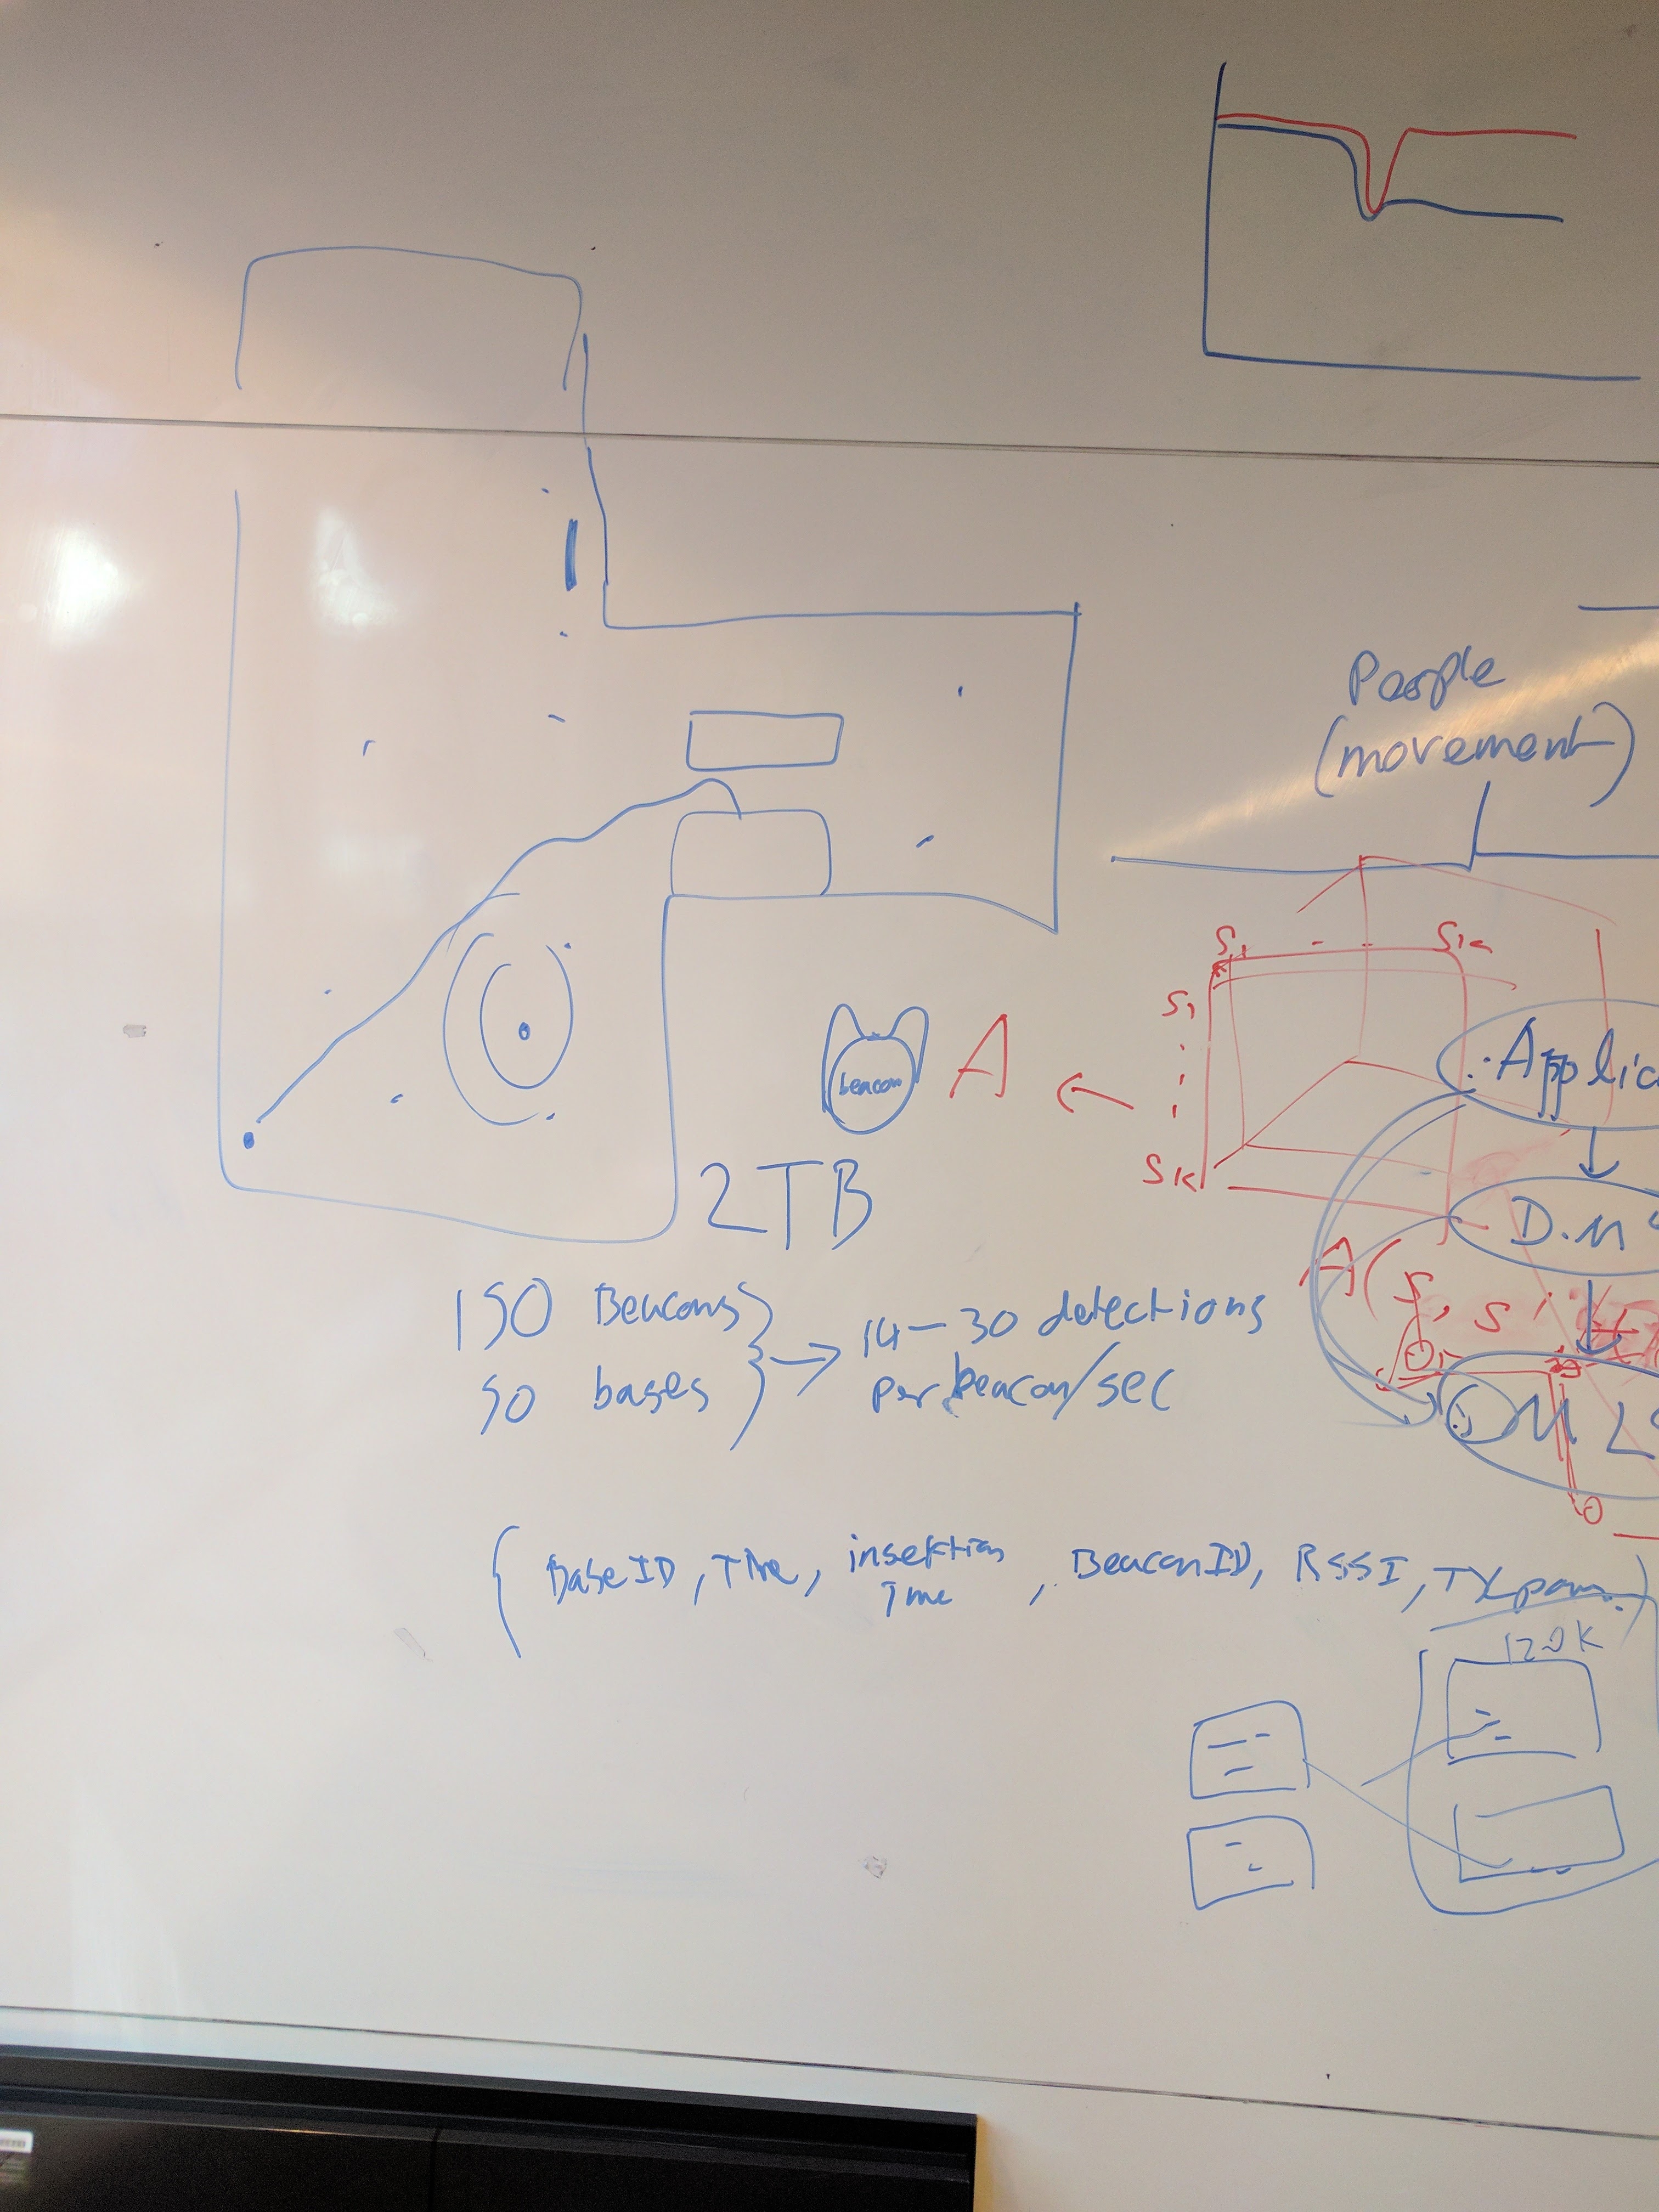 People
(movement)
S1 - - SK
S1
SK
A
beacon
Applic
D.M
A(S, S'
ML
2TB
150 Beacons
50 bases
14-30 detections
per beacon/sec
BaseID, Time, insertion Time, BeaconID, RSSI, TX
120K